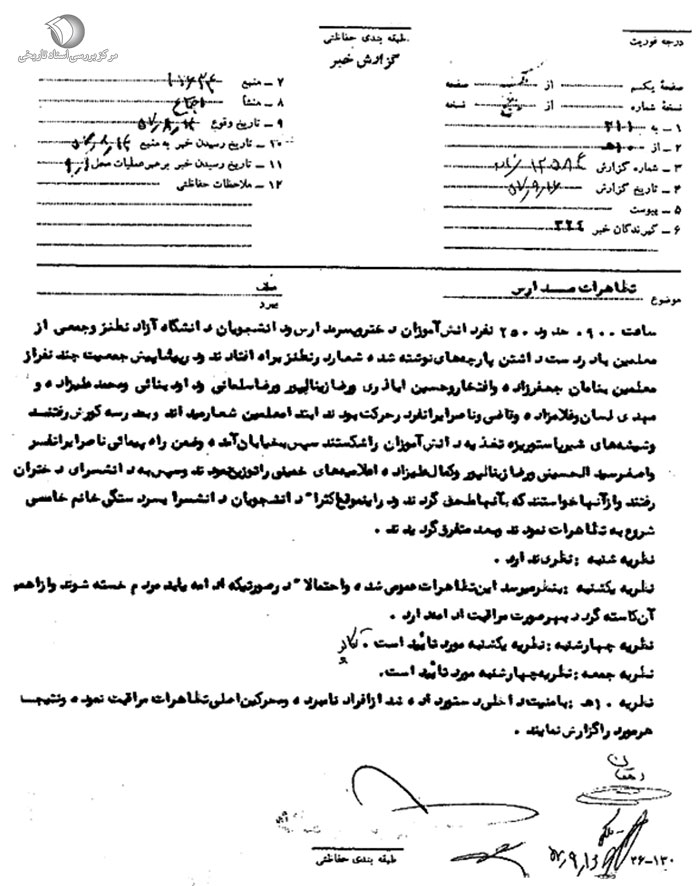 مرکز بررسی اسناد تاریخی
طبقه بندی حفاظتی
گزارش خبر
درجه فوریت
صفحه یکم از صفحه
نسخه شماره از نسخه
۱ – به ۳۱۱
۲ – از ۱۰ه‍
۳ – شماره گزارش
۴ – تاریخ گزارش
۵ – پیوست
۶ – گیرندگان خبر ۳۲۴
۷ – منبع
۸ – منشأ
۹ – تاریخ وقوع
۱۰ – تاریخ رسیدن خبر به منبع
۱۱ – تاریخ رسیدن خبر برهبر عملیات محل
۱۲ – ملاحظات حفاظتی
موضوع تظاهرات مدارس
عطف
پیرو
ساعت ۰۹۰۰ حدود ۲۵۰ نفر دانش‌آموزان دختر و پسر مدارس و دانشجویان دانشگاه آزاد نطنز و جمعی از
معلمین با در دست داشتن پارچه‌های نوشته شده شعار در نطنز براه افتادند و در پیشاپیش جمعیت چند نفر از
معلمین بنامان جعفرزاده و افتخار و حسین اباذری و رضا زینالپور و رضا سلمانی و داود بنائی و محمد علیزاده و
مهدی لسان و غلامزاده و قاضی و ناصر ایرانفرد در حرکت بودند ابتدا معلمین شعار میداند و بمدرسه کورش رفتند
وشیشه‌های شیر پاستوریزه تغذیه دانش‌آموزان را شکستند سپس بخیابان آمده وضمن راه پیمائی ناصر ایرانفر
واصغر سید الحسینی و رضا زینالپور وکمال علیزاده اعلامیه‌های خمینی را توزیع نمودند وسپس به دانشسرای دختران
رفتند واز آنها خواستند که بآنها ملحق گردند و در اینموقع اکثرا" دانشجویان دانشسرا بسردستگی خانم خامسی
شروع به تظاهرات نمودند وبعد متفرق گردیدند .
نظریه شنبه : نظری ندارد .
نظریه یکشنبه : بنظر میرسد این تظاهرات عمومی شده و احتمالا" در صورتیکه ادامه یابد مردم خسته شوند واز اهمیت
آن کاسته گردد بهر صورت مراقبت ادامه دارد .
نظریه چهارشنبه : نظریه یکشنبه مورد تأیید است .
نظریه جمعه : نظریه چهارشنبه مورد تأیید است.
نظریه ۱۰ه‍ : بامنیت داخلی دستور داده شد از افراد نامبرده ومحرکین اصلی تظاهرات مراقبت نموده ونتیجه
هر مورد را گزارش نمایند .
دهقان
۲۶-۱۳۰
طبقه بندی حفاظتی